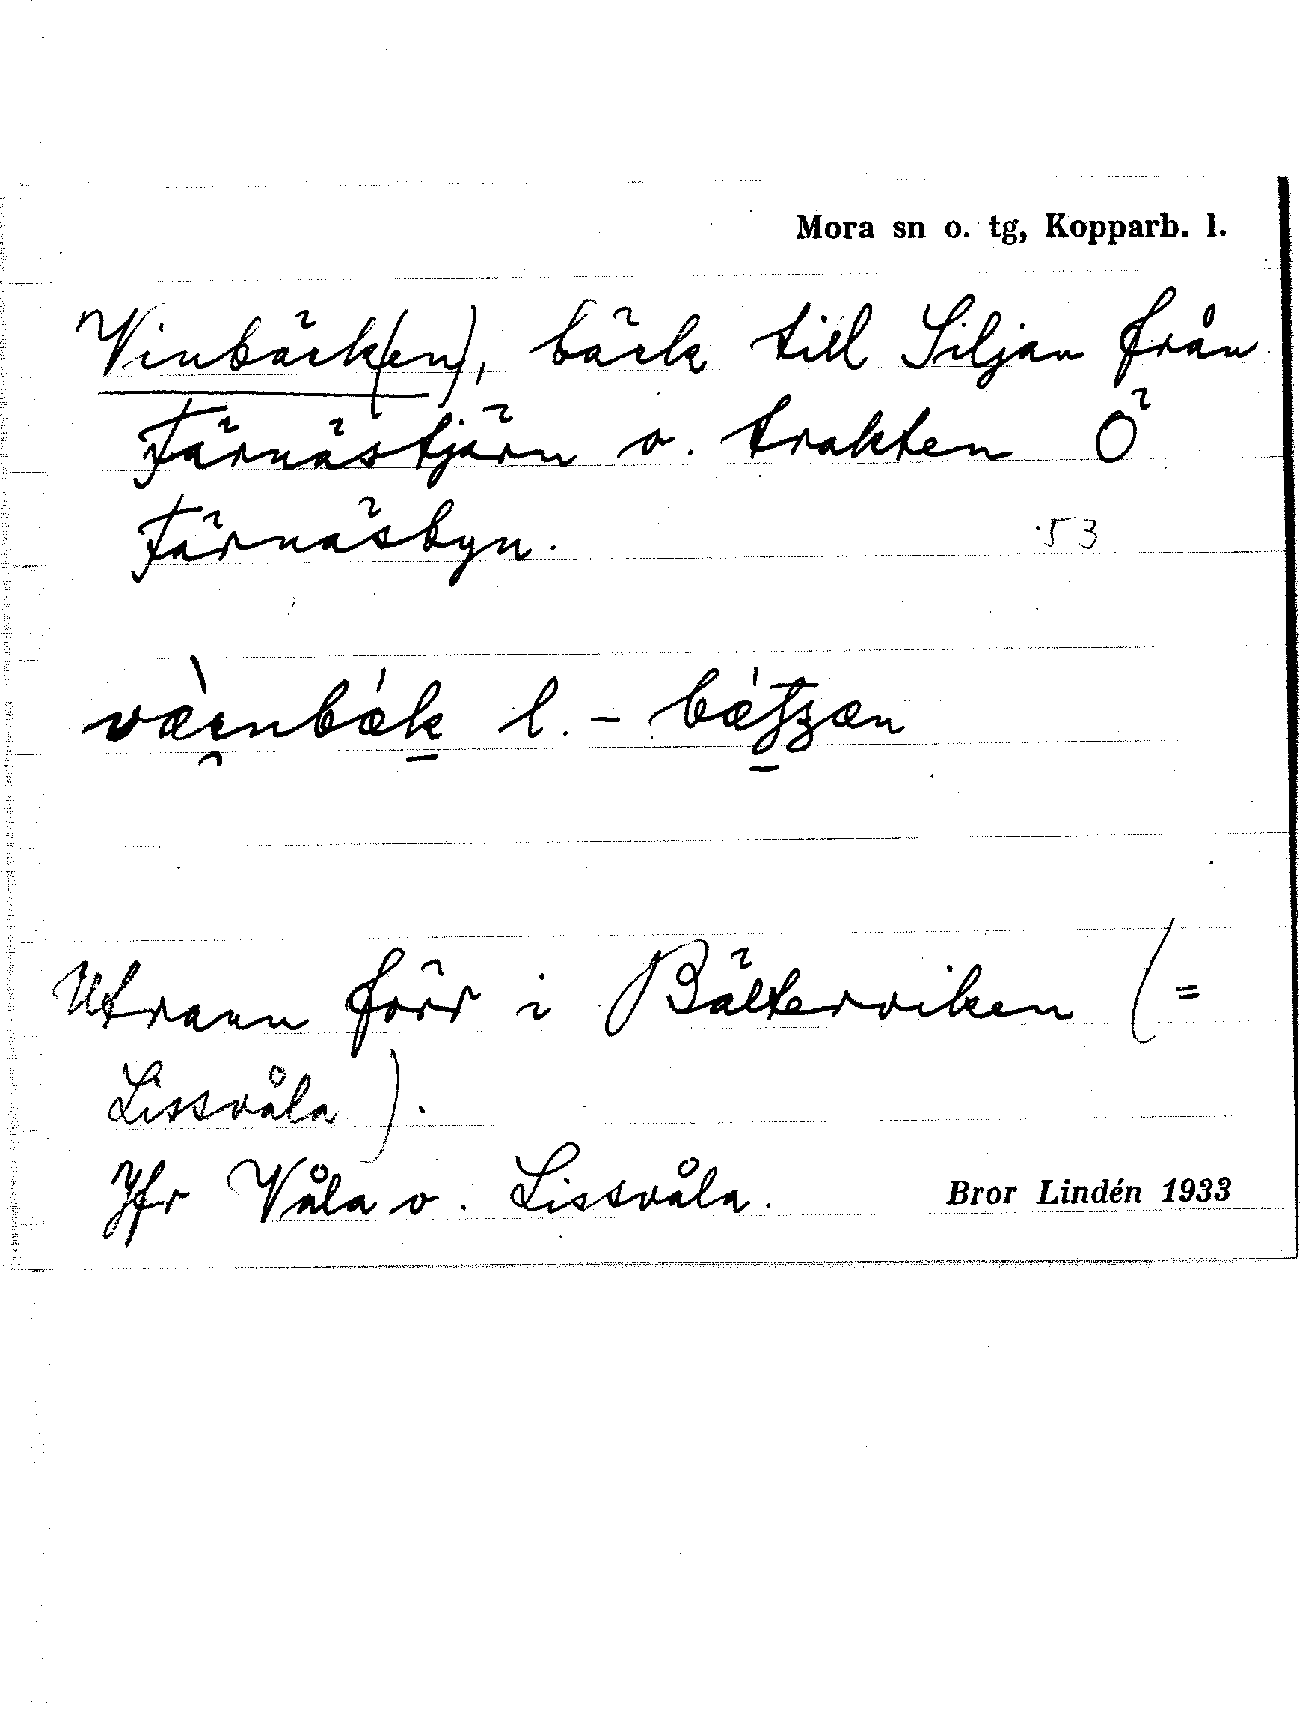 Mora sn o. tg, Kopparb. l.
Vinbäck(en), bäck till Siljan från
Färnästjärn o. trakten Ö
Färnäsbyn. 53
l. -
Utrann förr i Bälterviken (=
Lissvåla).
Jfr Våla o. Lissvåla. Bror Lindén 1933